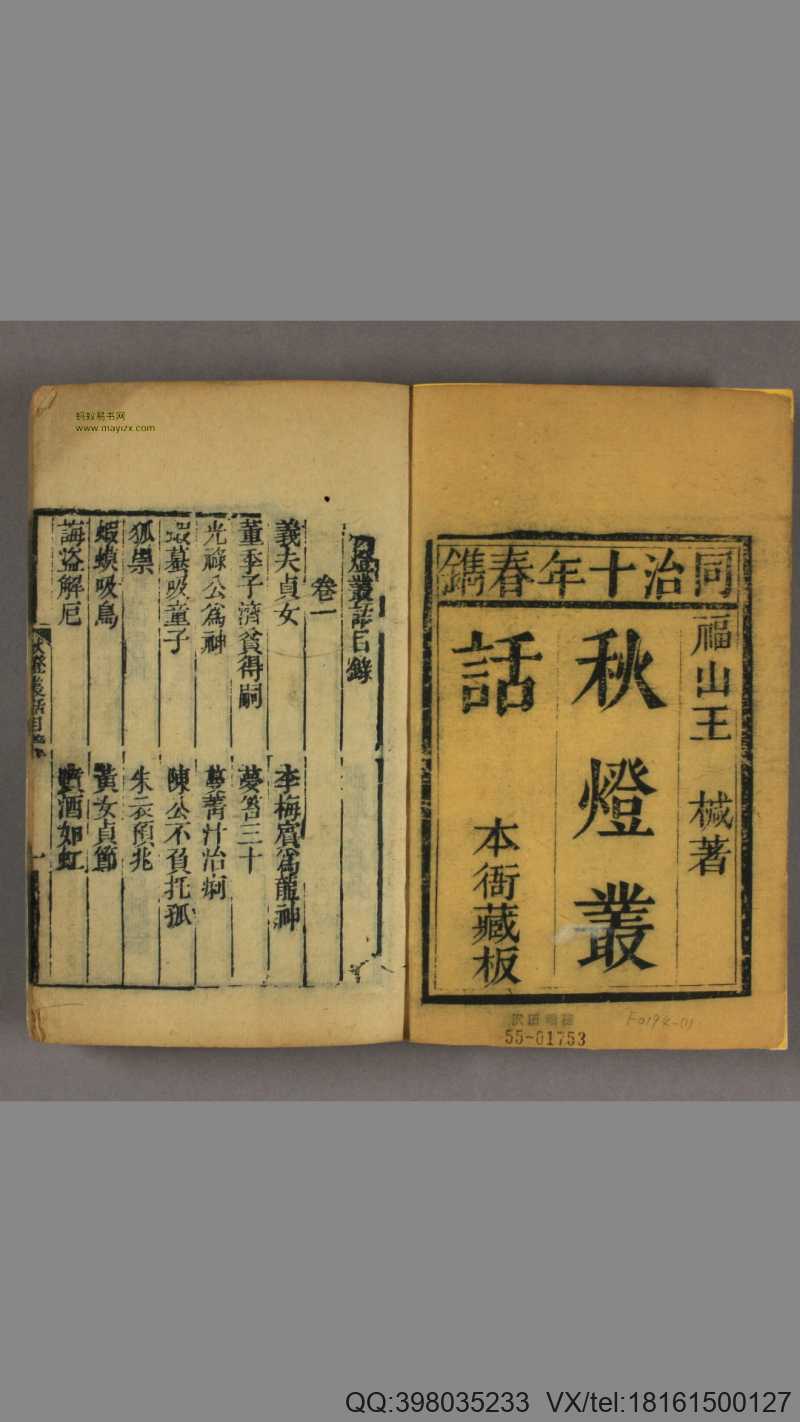 同治十年春鐫
福山王 椷著
秋燈叢
話
本衙藏板
55-01753
燈叢話目錄
卷一
義夫貞女 李梅賓爲龍神
董季子濟貧得嗣 夢笞三十
光祿公爲神 蔓菁汁治痢
蝦蟇吸童子 陳公不負托孤
狐祟 朱衣預兆
蝦蟆吸鳥 黃女貞節
誨盜解厄 噴酒如虹
秋燈叢話目錄
一
蚂蚁易书网
www.mayizx.com
QQ:398035233 VX/tel:18161500127